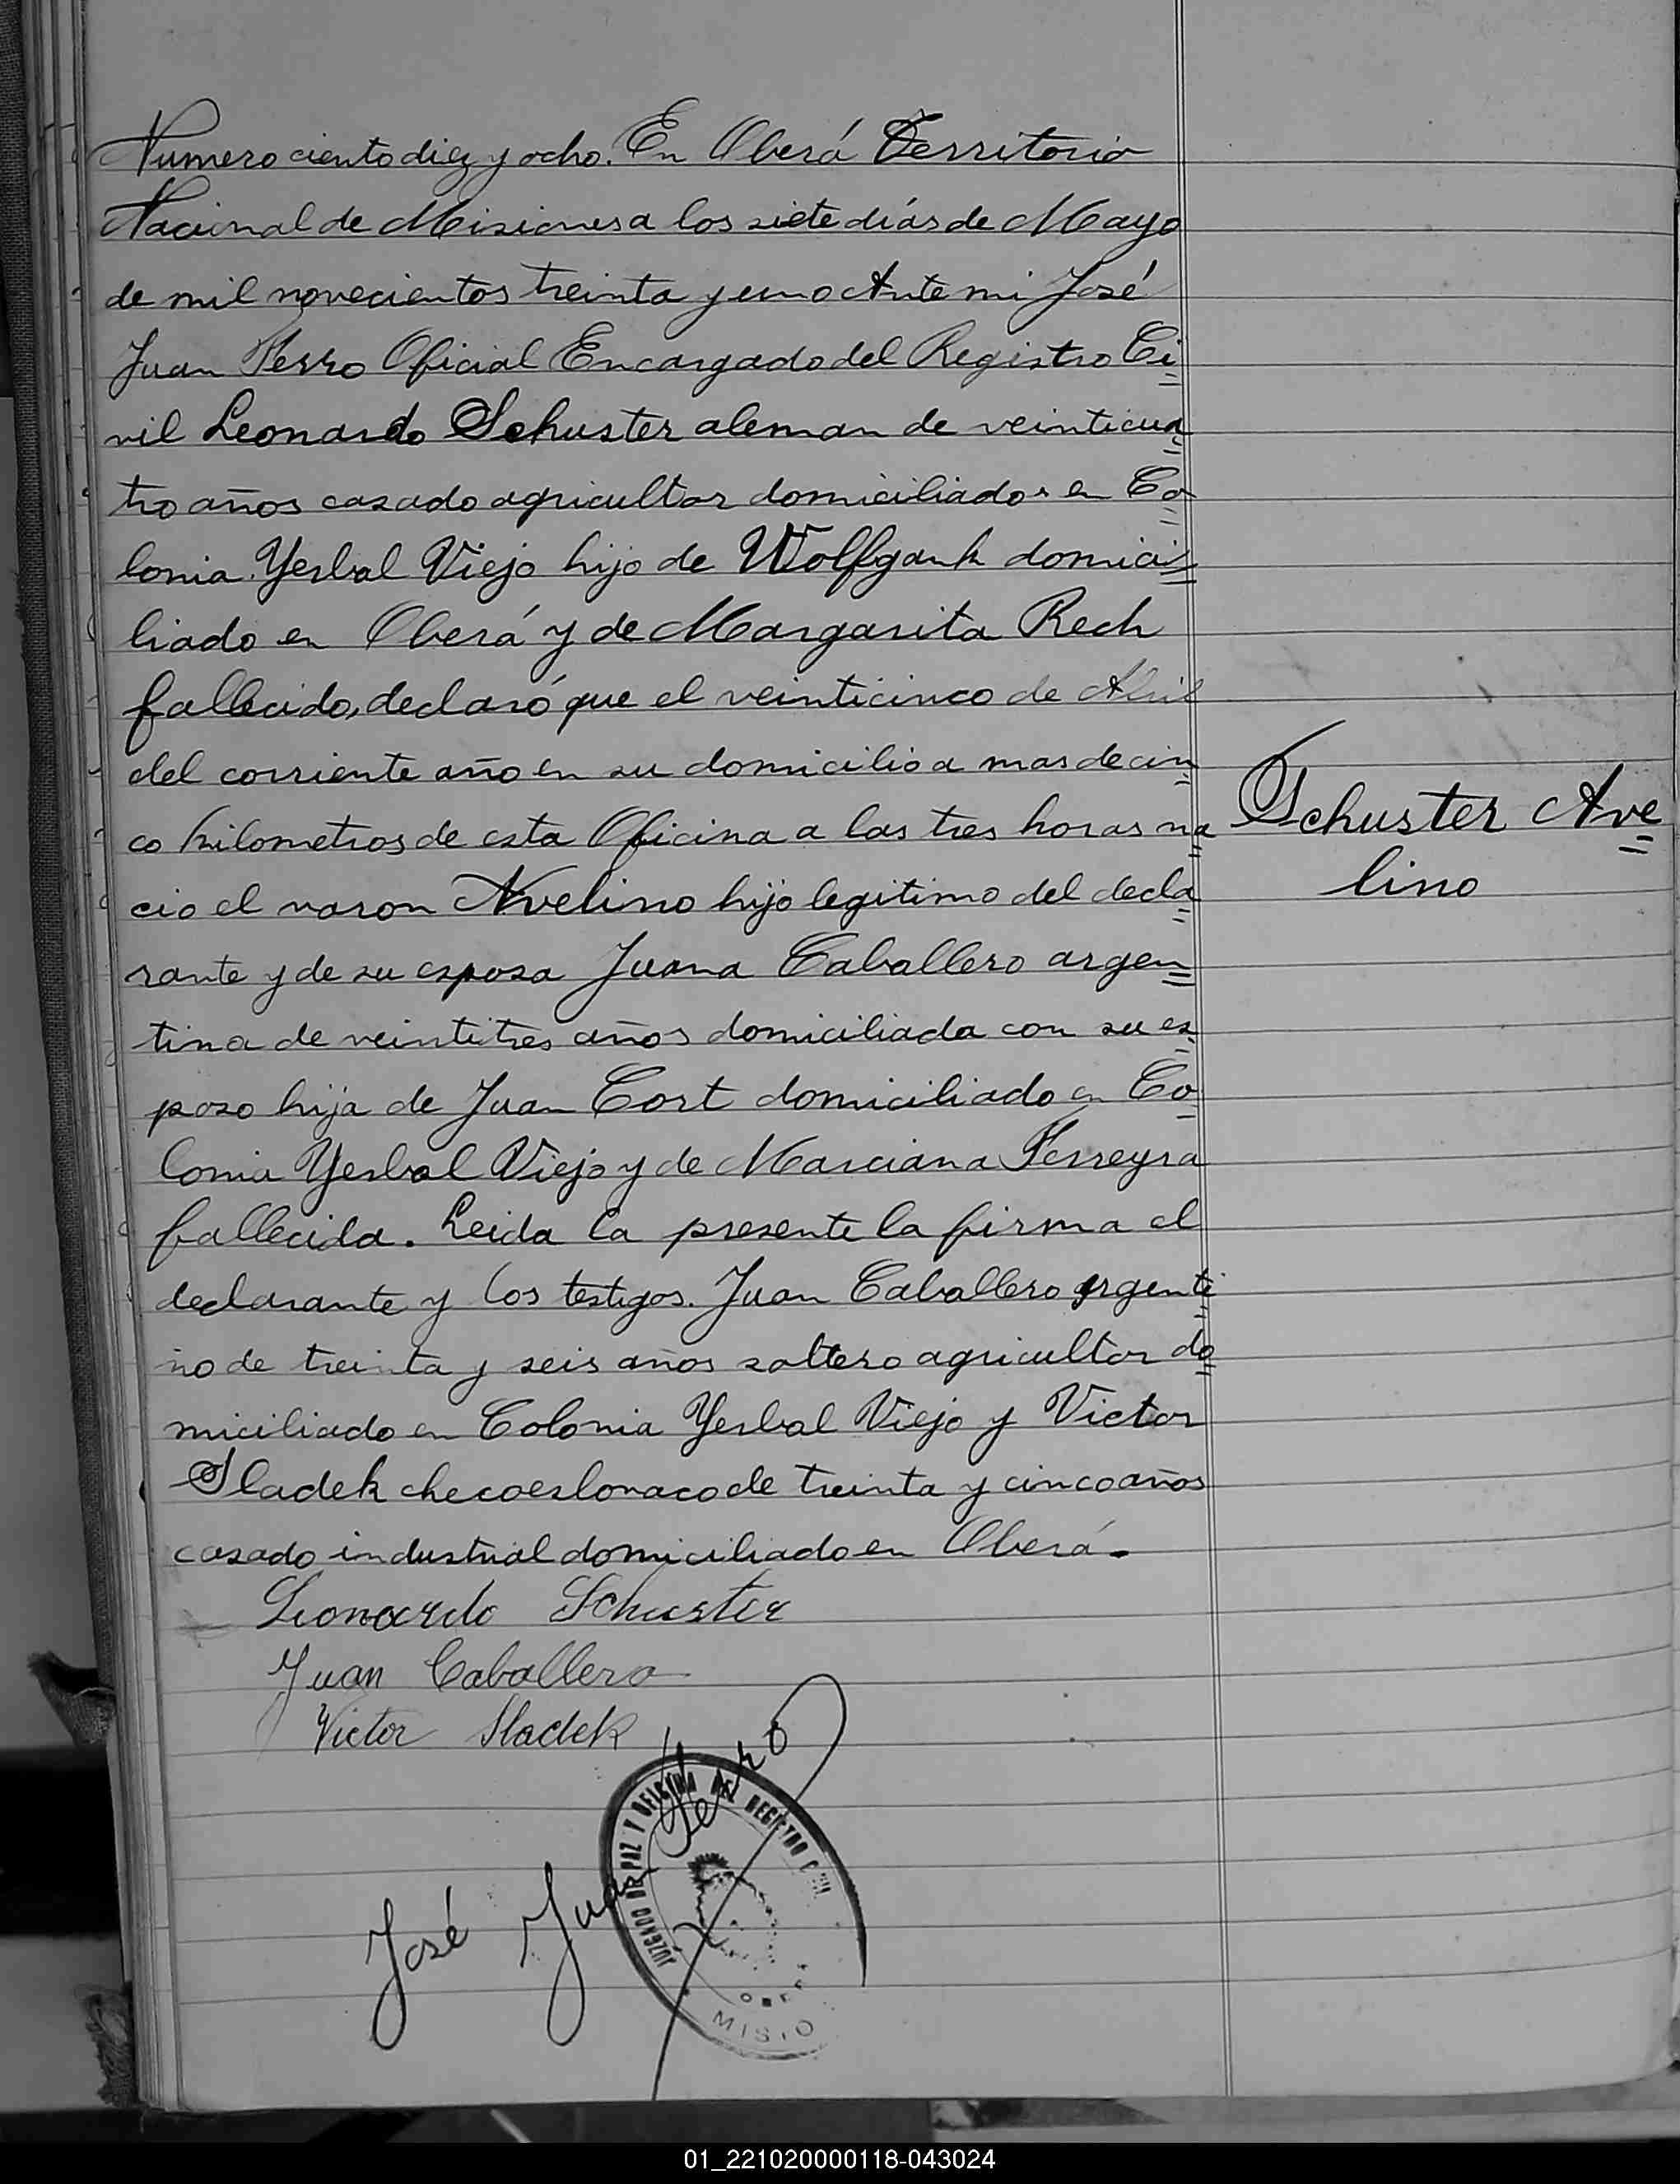 Numero ciento diez y ocho. En Oberá Territorio
Nacional de Misiones a los siete días de Mayo
de mil novecientos treinta y uno Ante mi José
Juan Perro Oficial Encargado del Registro Ci=
vil Leonardo Schuster aleman de veinticua=
tro años casado agricultor domiciliado en Co=
lonia Yerbal Viejo hijo de Wolfgank domici=
liado en Oberá y de Margarita Rech
fallecido, declaró que el veinticinco de Abril
del corriente año en su domicilio a mas de cin=
co kilometros de esta Oficina a las tres horas na=
cio el varon Avelino hijo legitimo del decla=
rante y de su esposa Juana Caballero argen=
tina de veintitres años domiciliada con su es=
poso hija de Juan Cort domiciliado en Co=
lonia Yerbal Viejo y de Marciana Ferreyra
fallecida. Leida la presente la firma el
declarante y los testigos. Juan Caballero argenti=
no de treinta y seis años soltero agricultor do=
miciliado en Colonia Yerbal Viejo y Victor
Sladek checoeslovaco de treinta y cinco años
casado industrial domiciliado en Oberá.
Leonardo Schuster
Juan Caballero
Victor Sladek
José Juan Perro
JUZGADO DE PAZ Y OFICINA DEL REGISTRO CIVIL
MISIO
Schuster Ave=
lino
01_221020000118-043024